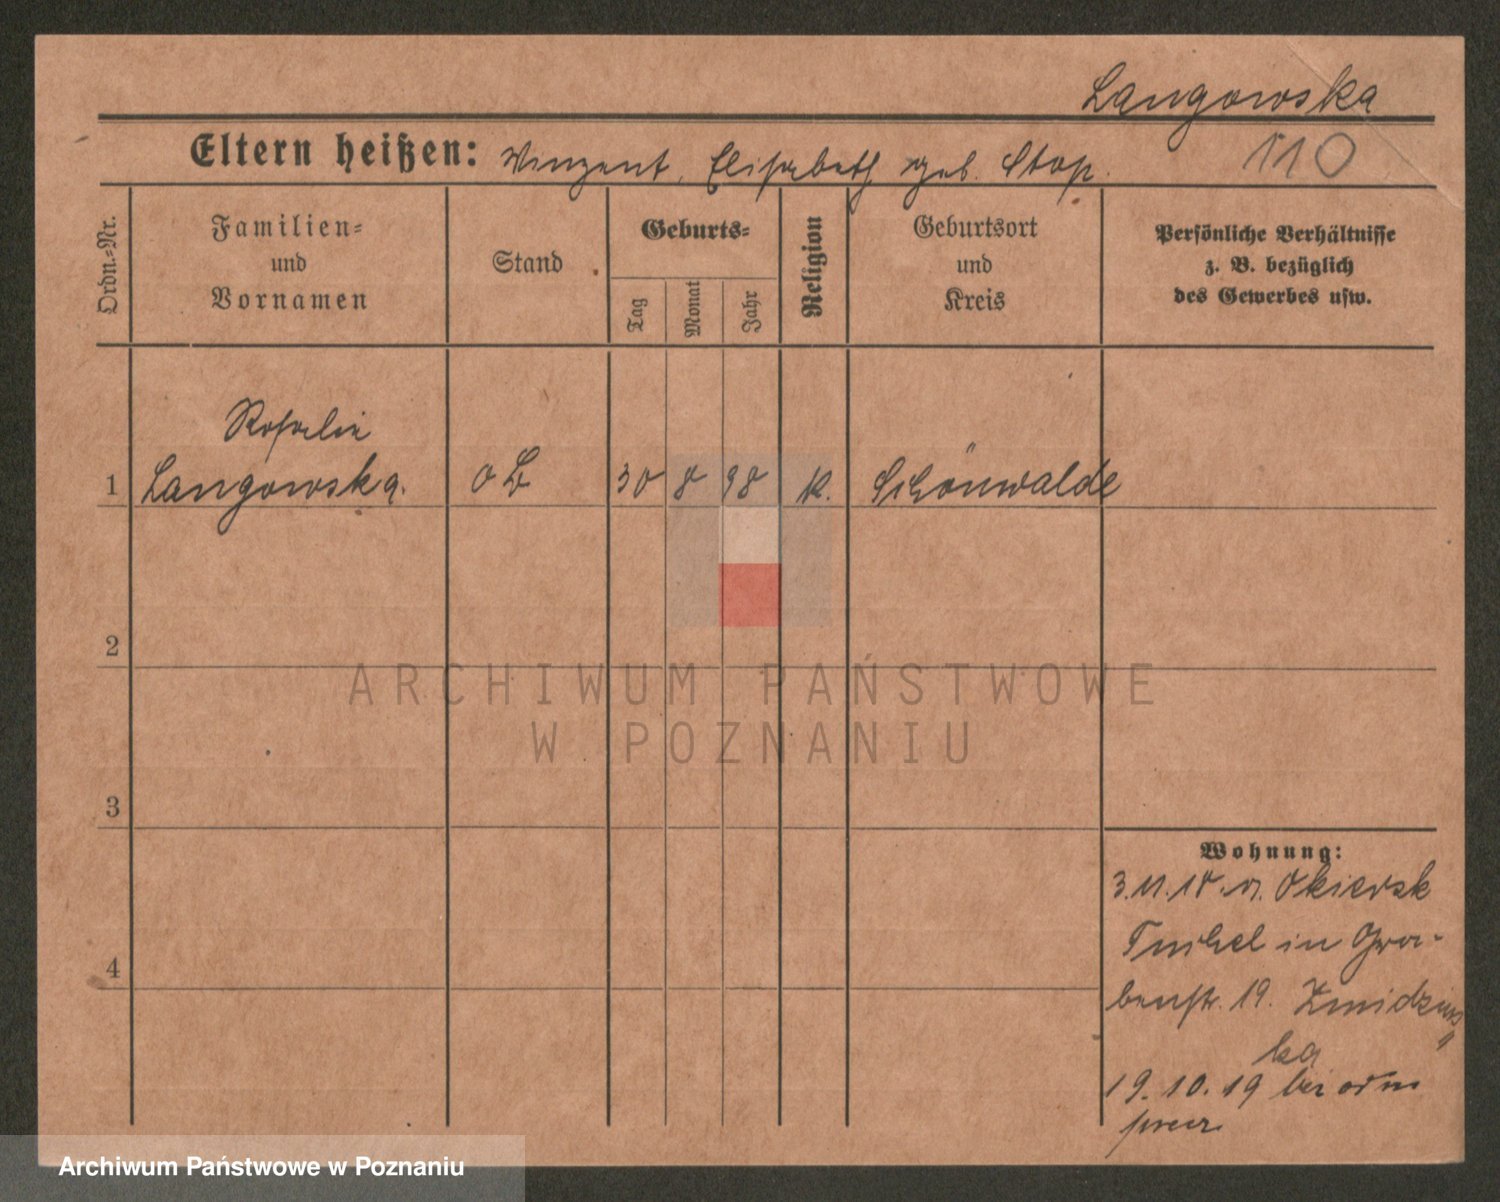 Langowska
Eltern heißen: Vinzent, Elisabeth geb. Stop.
110
Ordn.-Nr.
Familien-
und
Vornamen
Stand
Geburts-
Tag
Monat
Jahr
Religion
Geburtsort
und
Kreis
Persönliche Verhältnisse
z. B. bezüglich
des Gewerbes usw.
Rosalie
1 Langowska. 30 8 98 K. Schönwalde
2
3
4
Wohnung:
3.11.18. Okiersk
Tuchel in Gra-
benstr. 19.
ka
19.10.19 bei
ARCHIWUM PAŃSTWOWE
W POZNANIU
Archiwum Państwowe w Poznaniu